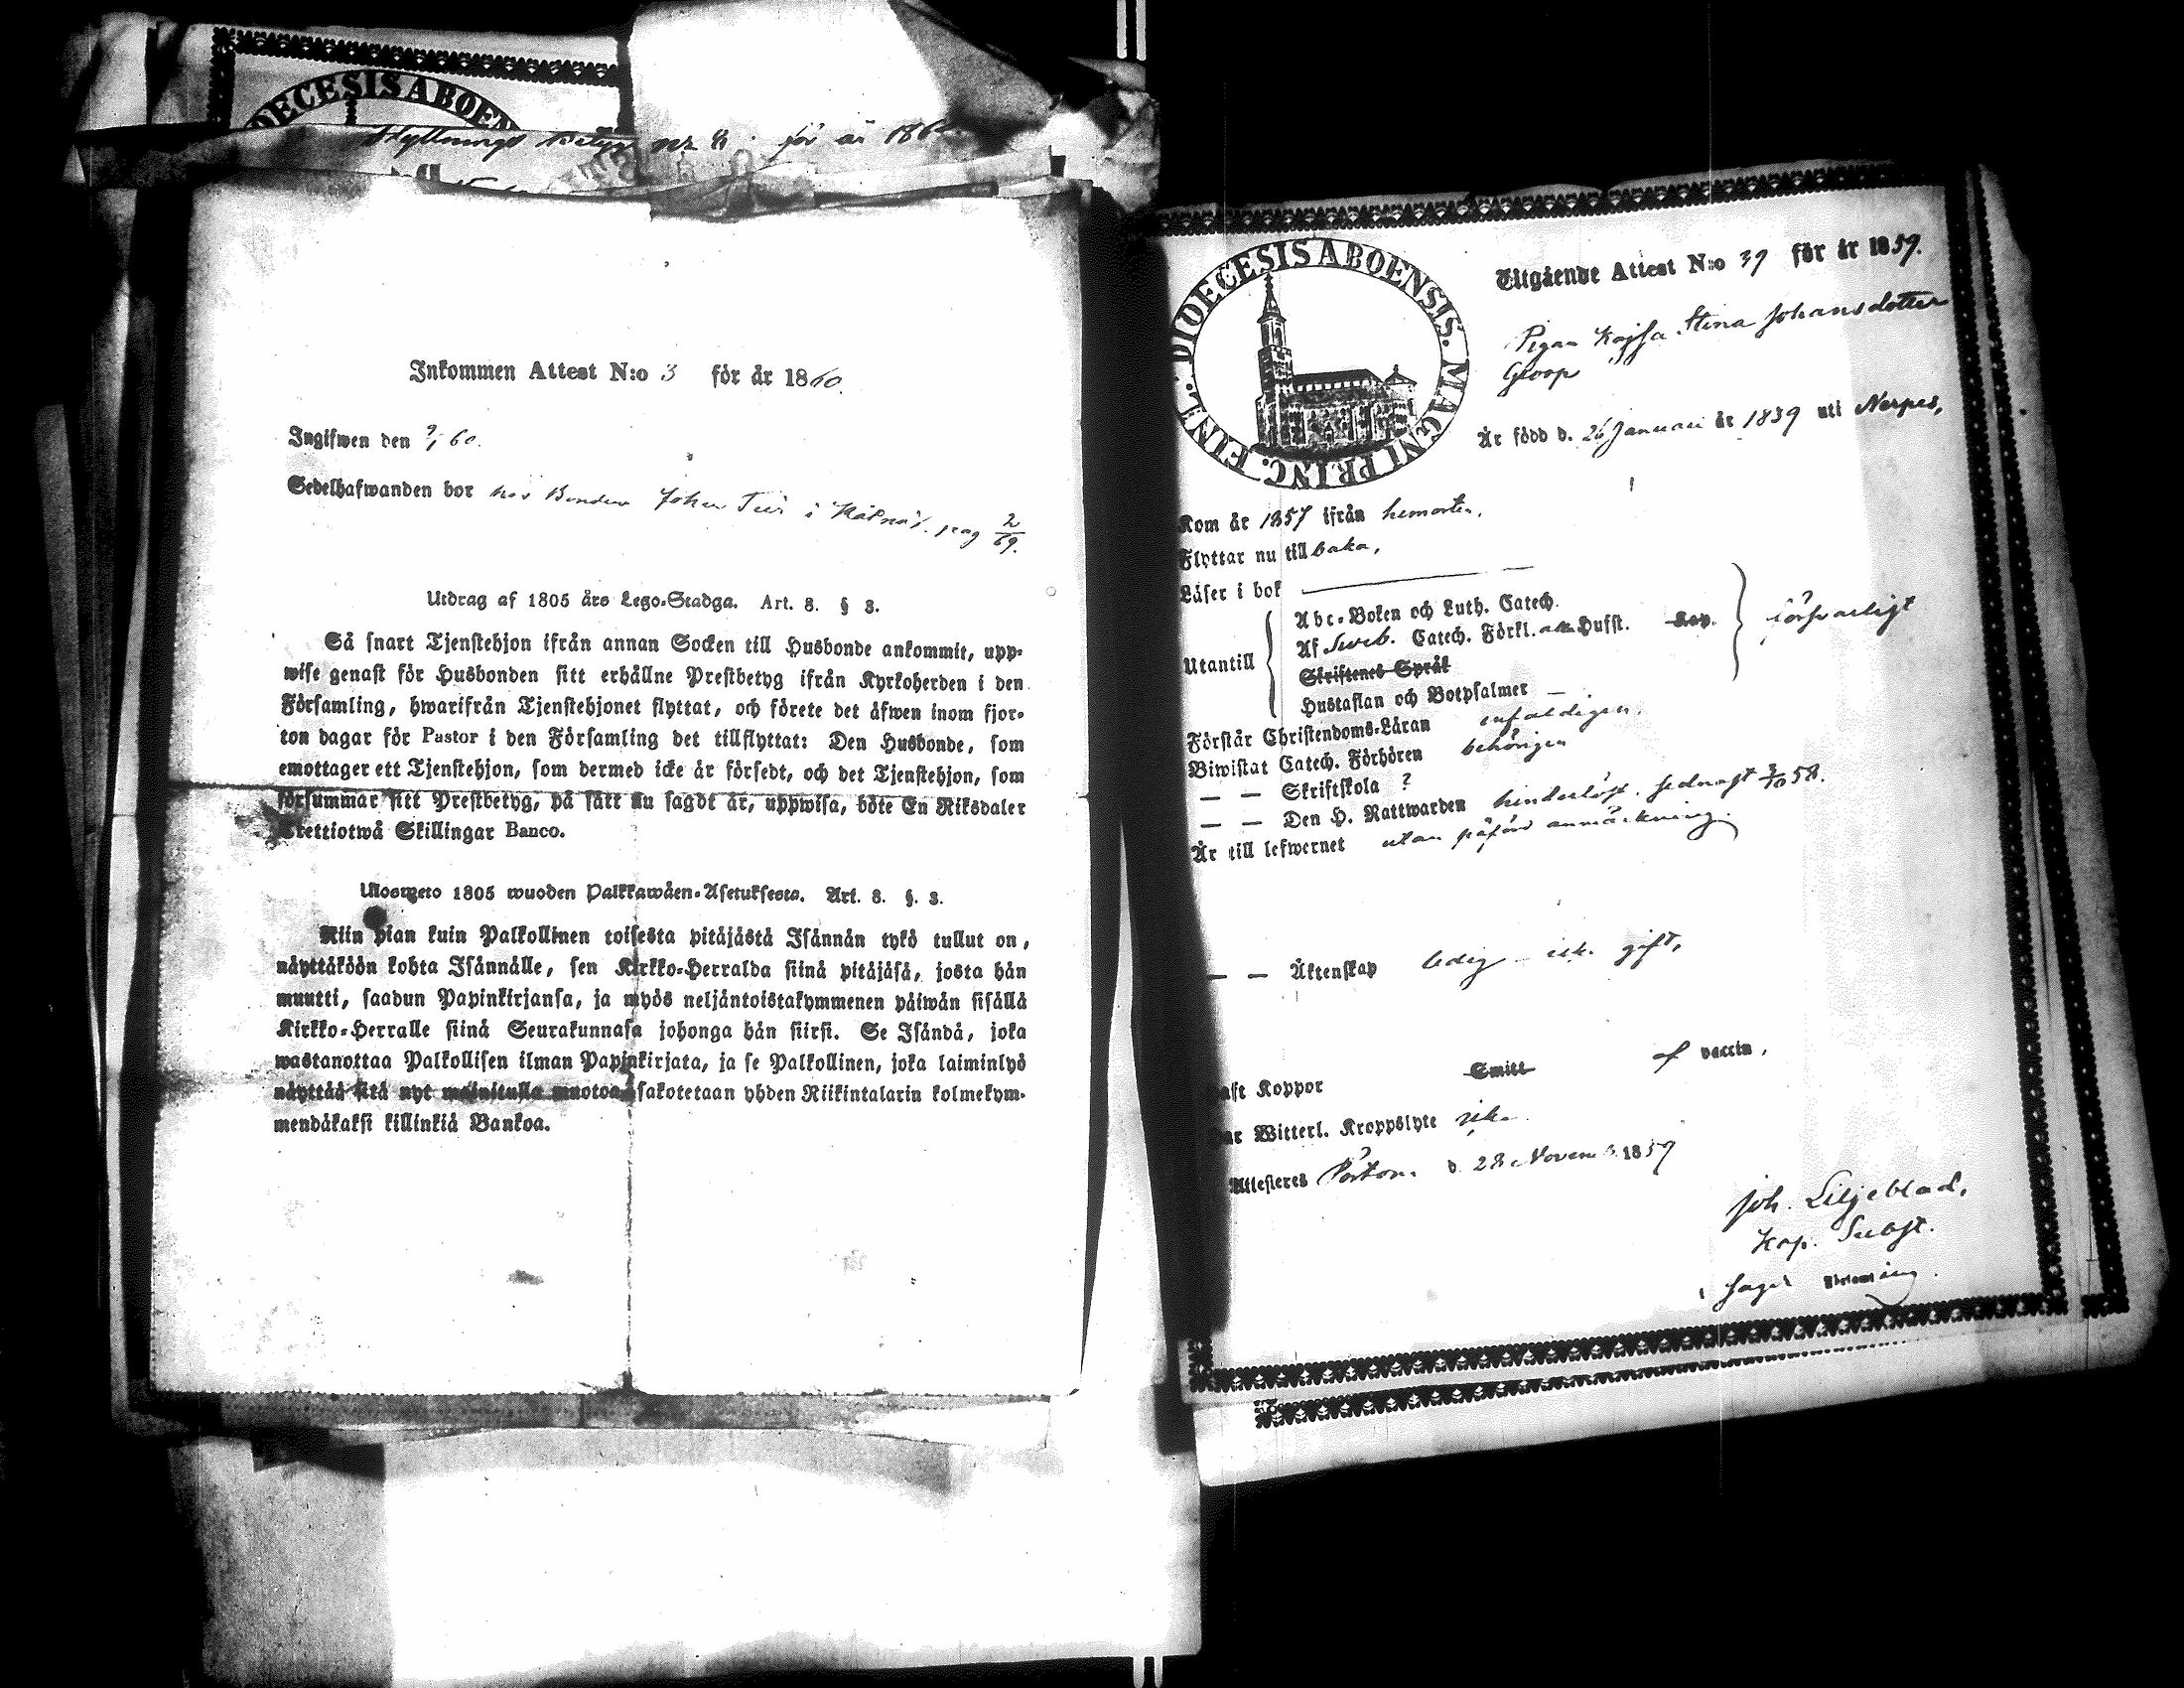 DIOECESIS ABOEN
Flyttnings Betyg för år 186
Inkommen Attest N:o 3 för år 1860.
Ingifwen den 9/1 60.
Sedelhafwanden bor hos Bonden Johan i pag 2/69.
Utdrag af 1805 års Lego-Stadga. Art. 8. § 3.
Så snart Tjenstehjon ifrån annan Socken till Husbonde ankommit, upp-
wise genast för Husbonden sitt erhållne Prestbetyg ifrån Kyrkoherden i den
Församling, hwarifrån Tjenstehjonet flyttat, och förete det äfwen inom fjor-
ton dagar för Pastor i den Församling det tillflyttat: Den Husbonde, som
emottager ett Tjenstehjon, som dermed icke är försedt, och det Tjenstehjon, som
försummar sitt Prestbetyg, på sätt nu sagdt är, uppwisa, böte En Riksdaler
Trettiotwå Skillingar Banco.
Ulosweto 1805 wuoden Palkkawäen-Asetuksesta. Art. 8. §. 3.
Niin pian kuin Palkollinen toisesta pitäjästä Isännän tykö tullut on,
näyttäköön kohta Isännälle, sen Kirkko-Herralda siinä pitäjäsä, josta hän
muutti, saadun Papinkirjansa, ja myös neljäntoistakymmenen päiwän sisällä
Kirkko-Herralle siinä Seurakunnasa johonga hän siirsi. Se Isändä, joka
wastanottaa Palkollisen ilman Papinkirjata, ja se Palkollinen, joka laiminlyö
näyttää sitä nyt mainitulla muotoa, sakotetaan yhden Riikintalarin kolmekym-
mendäkaksi killinkiä Bankoa.
DIOECESIS ABOENSIS. MAGNI PRINC. FINL.
Utgående Attest N:o 39 för år 1859.
Pigan Kajsa Stina Johansdotter
Groop
Är född d. 26 Januari år 1839 uti Nerpes,
Kom år 1857 ifrån hemorten,
Flyttar nu tillbaka,
Läser i bok
Utantill
Abc-Boken och Luth. Catech.
Af Sveb. Catech. Förkl. alla Hufst. Kap.
Skriftenes Språk
Hustaflan och Botpsalmer
försvarligt
Förstår Christendoms-Läran enfaldigen.
Biwistat Catech. Förhören behörigen
— — Skriftskola ?
— — Den H. Nattwarden hinderlöst, sednast 3/10 58.
Är till lefwernet utan påförd anmärkning.
— — Äktenskap ledig icke gift,
Haft Koppor Smitt af vaccin,
Har Witterl. Kroppslyte icke
Attesteres Pörtom d. 28 Novemb. 1859
Joh. Liljeblad,
Kap. Subst.
i sagde Församling.